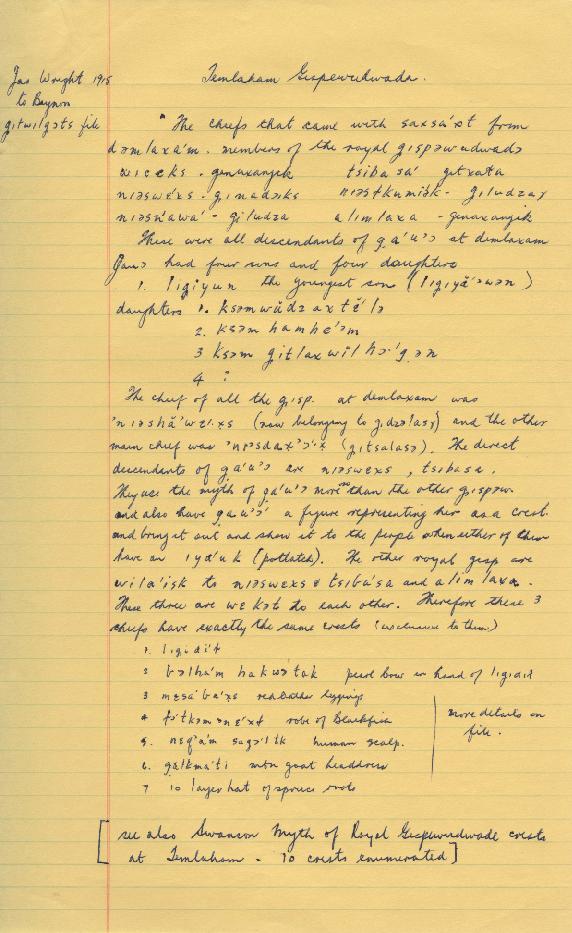 Jas Wright 1915
to Beynon
gıtwilgɔts file
Temlaham Gispewudwada.
"The chiefs that came with saxsá'xt from
dəmlaxá'm. members of the royal gıspəwudwadə
wiceks - genaxangık tsibasá' gıtxata
niəswɛ́xs - gınadɔıks niəstkumiśk - giludzaɣ
niəsnawá' - giludza alimlaxa - genaxangık
These were all descendants of ga'u'ɔ at demlaxam
Gauɔ had four sons and four daughters
1. lıgiyun the youngest son (lıgıyă'ɔwən)
daughters 1. ksəmwŭdzaxtɛ̆'lə
2. ksəm hamhe'əm
3 ksəm gıtlaxwilhɔ'gən
4 :
The chief of all the gısp. at demlaxam was
'niəshă'wɛ'xs (now belonging to gıdzəlasɣ) and the other
main chief was 'niəsdax'ɔ'x (gıtsalasɣ). The direct
descendants of ga'u'ɔ are niəswɛxs, tsıbasa.
They use the myth of ga'u'ɔ more so than the other gıspəw.
and also have gau'ɔ' a figure representing her as a crest.
and bring it out and show it to the people when either of them
have an ıyá'uk (potlatch). The other royal gısp are
wila'isk to niəswɛxs & tsibá'sa and alimlaxa.
These three are wɛkət to each other. Therefore these 3
chiefs have exactly the same crests (exclusive to them)
1. lıgıdi'ɬ
2 bəlhá'm hakwətak pearl bow in hand of lıgidiɬ
3 mɛsá'ba'xs red leather leggings
4 ɬɔ'tkəmənɛ'xɬ robe of Blackfish
5. nɛq'á'm sagɔ'ltk human scalp.
6. gálkmá'ti mtn goat headdress
7 10 layer hat of spruce roots
more details on
file.
[see also Swanson Myth of Royal Gispewudwade crests
at Temlaham - 10 crests enumerated]